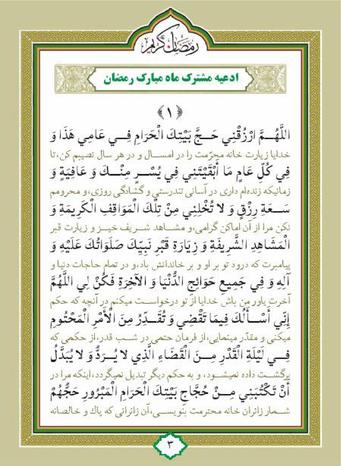 رمضان كريم
ادعیه مشترک ماه مبارک رمضان
﴿١﴾
اللَّهُمَّ ارْزُقْنِي حَجَّ بَيْتِكَ الْحَرَامِ فِي عَامِي هَذَا وَ
خدایا زیارت خانه محرّمت را در امسال و در هر سال نصیبم کن، تا
فِي كُلِّ عَامٍ مَا أَبْقَيْتَنِي فِي يُسْرٍ مِنْكَ وَ عَافِيَةٍ وَ
زمانیکه زنده‌ام داری در آسانی تندرستی و گشادگی روزی، و محرومم
سَعَةِ رِزْقٍ وَ لَا تُخْلِنِي مِنْ تِلْكَ الْمَوَاقِفِ الْكَرِيمَةِ وَ
نکن مرا از آن اماکن گرامی، و مشاهد شریف خیز و زیارت قبر
الْمَشَاهِدِ الشَّرِيفَةِ وَ زِيَارَةِ قَبْرِ نَبِيِّكَ صَلَوَاتُكَ عَلَيْهِ وَ
پیامبرت که درود تو بر او و بر خاندانش باد، و در تمام حاجات دنیا و
آلِهِ وَ فِي جَمِيعِ حَوَائِجِ الدُّنْيَا وَ الْآخِرَةِ فَكُنْ لِي اللَّهُمَّ
آخرت یاور من باش خدایا از تو درخواست میکنم در آنچه که حکم
إِنِّي أَسْأَلُكَ فِيمَا تَقْضِي وَ تُقَدِّرُ مِنَ الْأَمْرِ الْمَحْتُومِ
میکنی و مقدّر مینمایی، از فرمان حتمی در شب قدر، از حکمی که
فِي لَيْلَةِ الْقَدْرِ مِنَ الْقَضَاءِ الَّذِي لَا يُرَدُّ وَ لَا يُبَدَّلُ
برگشت داده نمیشود، و به حکم دیگر تبدیل نمیگردد، اینکه مرا در
أَنْ تَكْتُبَنِي مِنْ حُجَّاجِ بَيْتِكَ الْحَرَامِ الْمَبْرُورِ حَجُّهُمْ
شمار زائران خانه محترمت بنویسی، آن زائرانی که پاک و خالصانه
٣